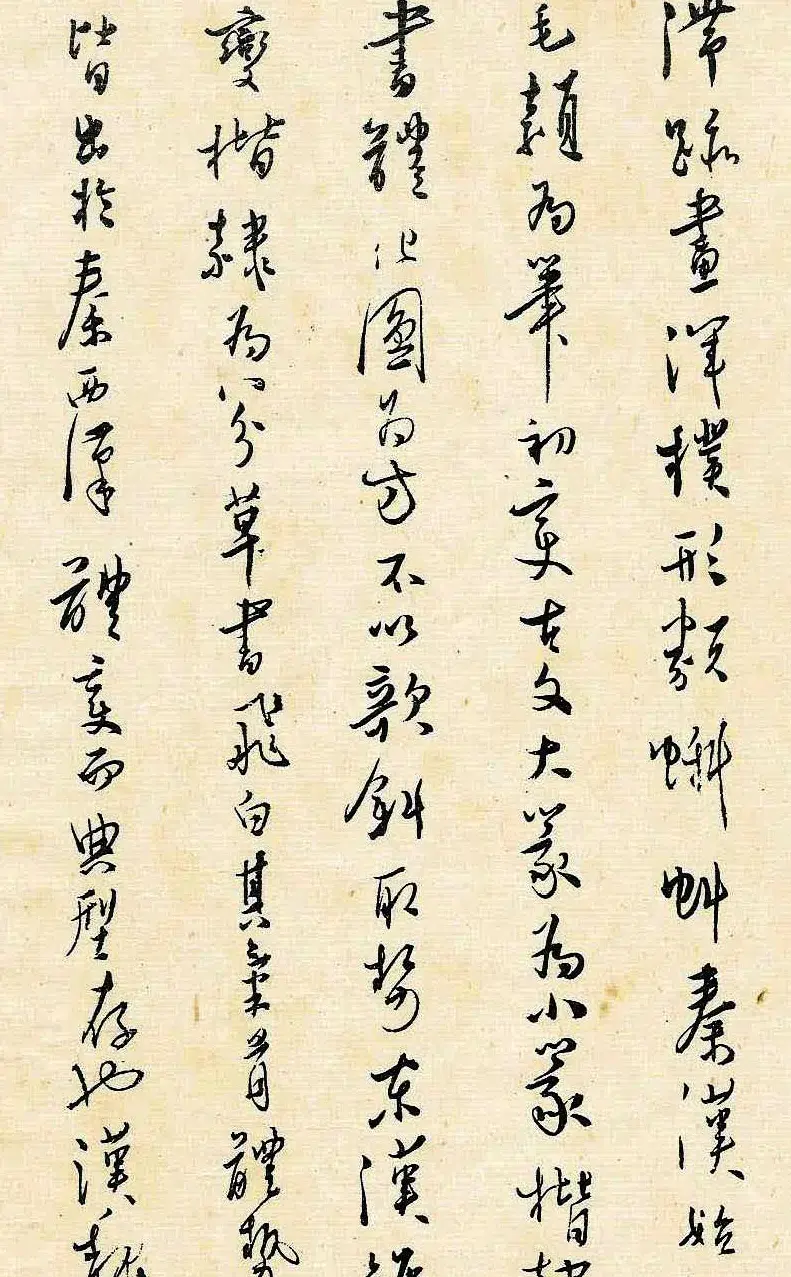 滯疏畫渾樸形類蝌蚪秦漢始
毛穎為筆初變古文大篆為小篆楷
書體化圓為方不以欹斜取勢東漢
變楷隸為八分草書飛白其氣骨體勢
皆出於秦西漢體變而典型存也漢魏